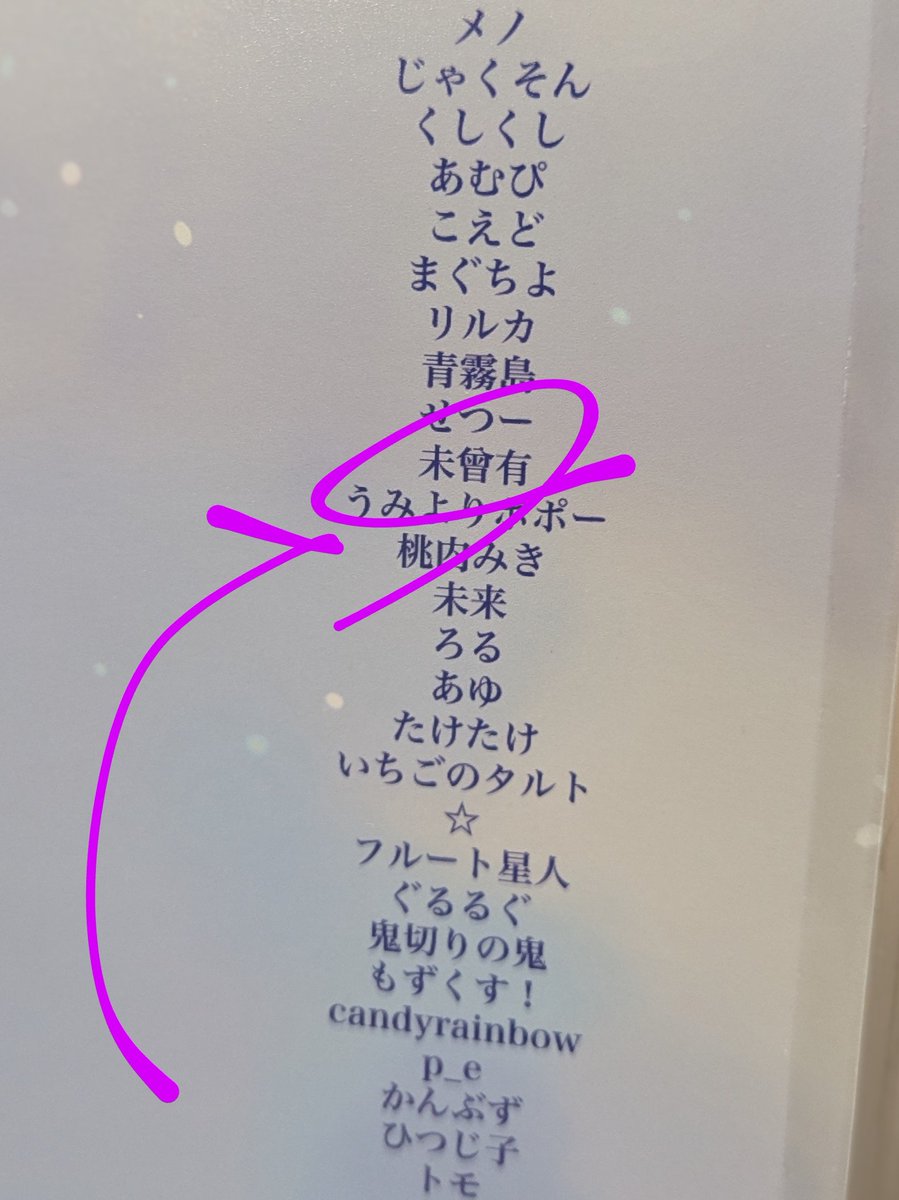 メノ
じゃくそん
くしくし
あむぴ
こえど
まぐちよ
リルカ
青霧島
せつー
未曾有
うみよりホポー
桃内みき
未来
ろる
あゆ
たけたけ
いちごのタルト
☆
フルート星人
ぐるるぐ
鬼切りの鬼
もずくす！
candyrainbow
p_e
かんぶず
ひつじ子
トモ